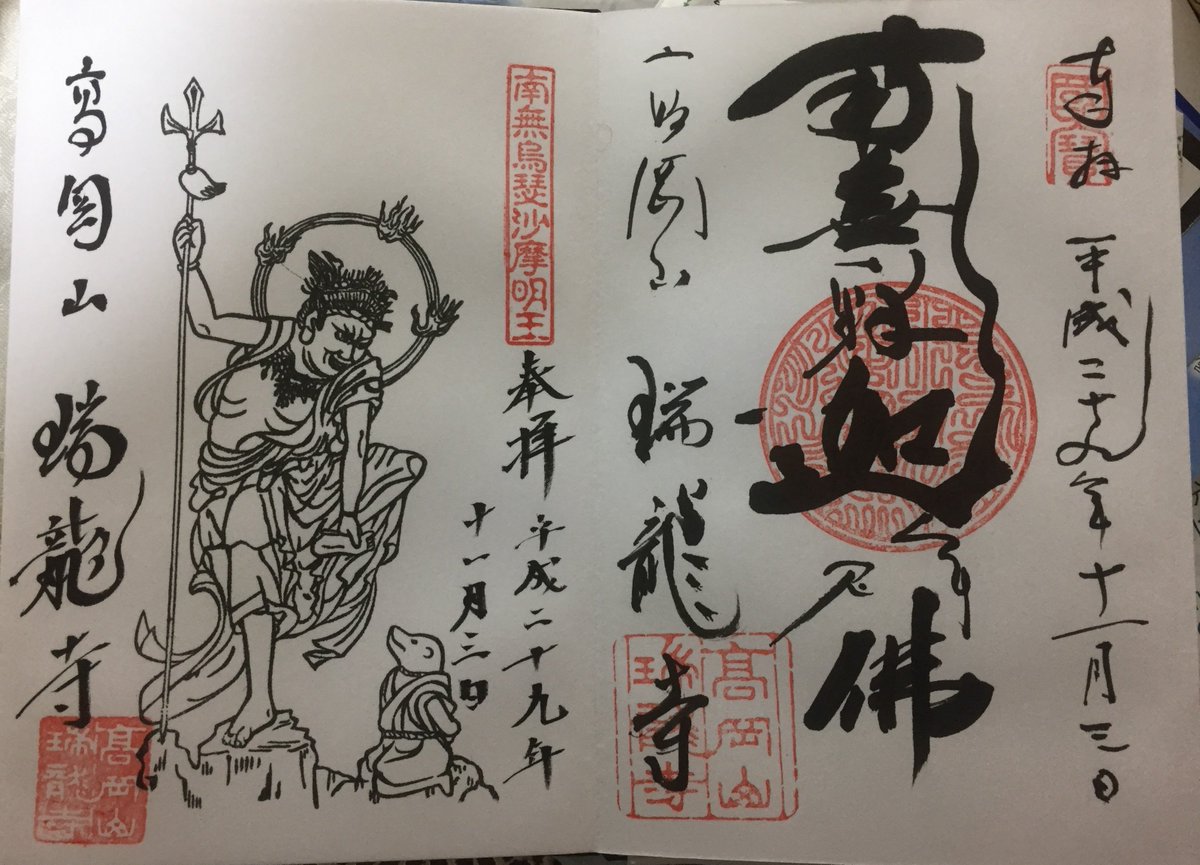 奉拝
國寶
平成二十九年十一月三日
南無釋迦牟尼佛
高岡山
瑞龍寺
高岡山
瑞龍寺
南無烏瑟沙摩明王
奉拝
平成二十九年
十一月三日
高岡山
瑞龍寺
高岡山
瑞龍寺